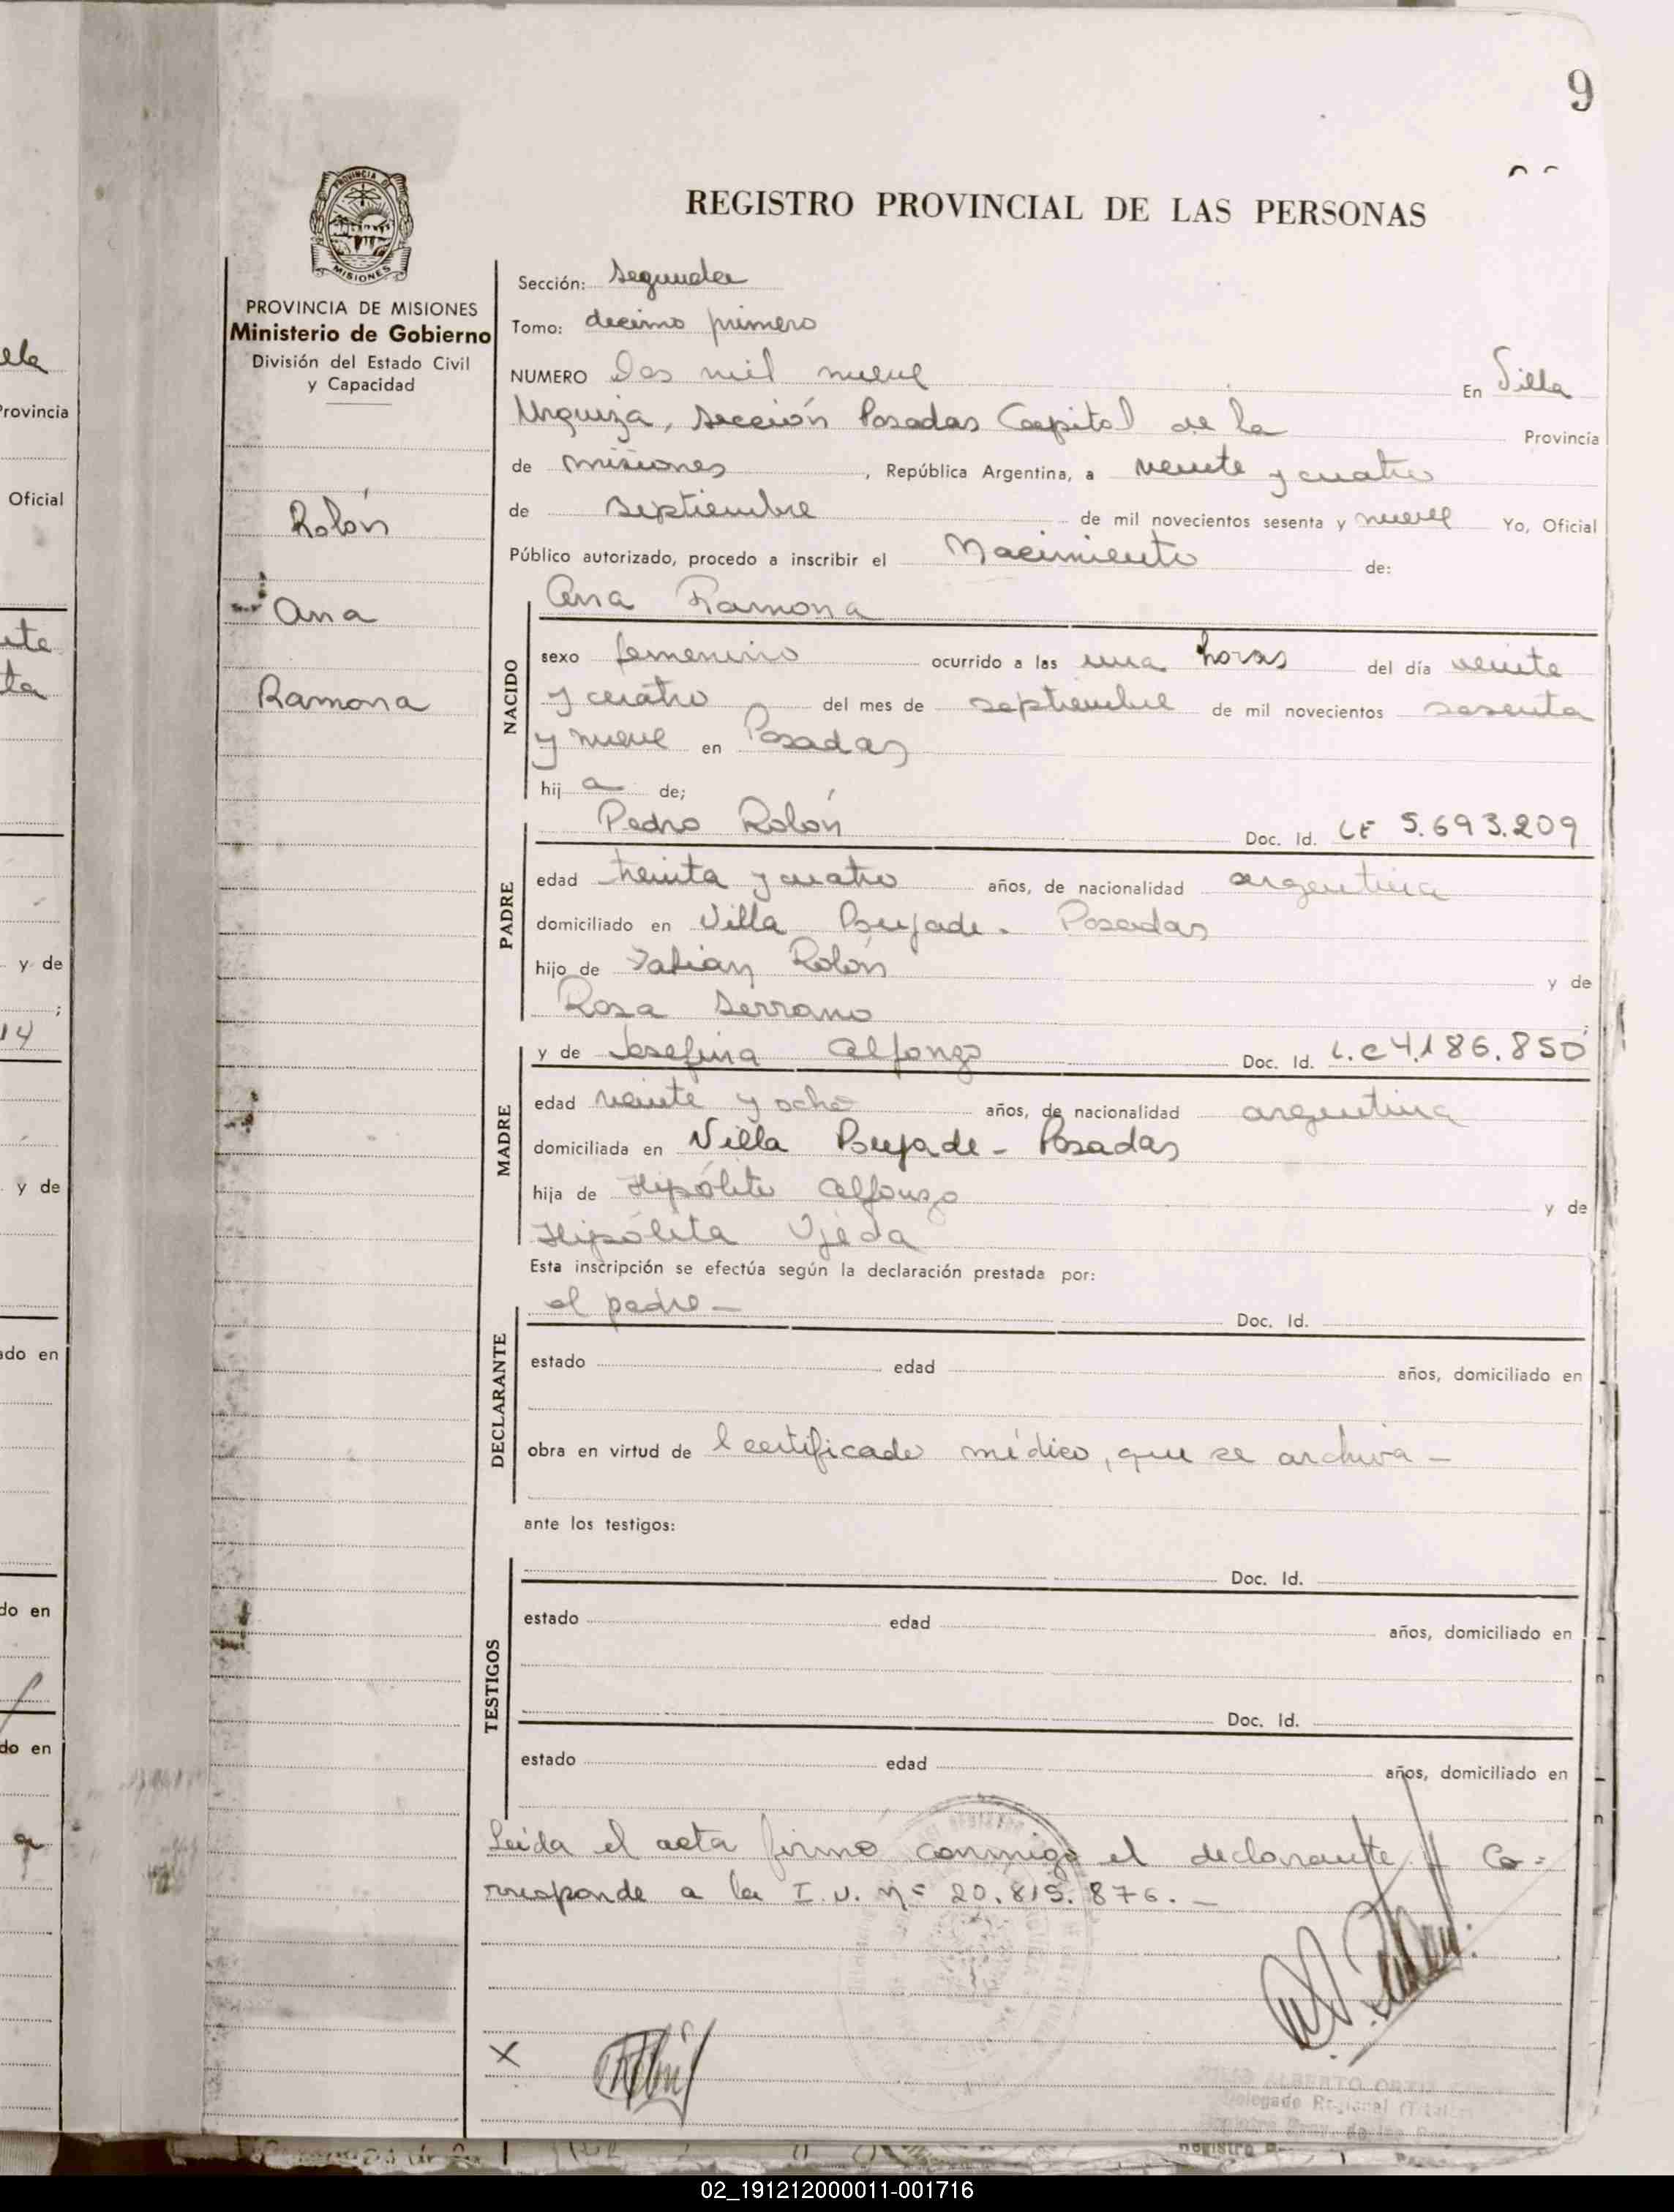 9
REGISTRO PROVINCIAL DE LAS PERSONAS
PROVINCIA DE
MISIONES
PROVINCIA DE MISIONES
Ministerio de Gobierno
División del Estado Civil
y Capacidad
Rolón
Ana
Ramona
Sección: Segunda
Tomo: decimo primero
NUMERO Dos mil nueve En Villa
Urquiza, sección Posadas Capital de la Provincia
de misiones, República Argentina, a veinte y cuatro
de septiembre de mil novecientos sesenta y nueve Yo, Oficial
Público autorizado, procedo a inscribir el Nacimiento de:
NACIDO
Ana Ramona
sexo femenino ocurrido a las una horas del día veinte
y cuatro del mes de septiembre de mil novecientos sesenta
y nueve en Posadas
hij a de;
PADRE
Pedro Rolón Doc. Id. LE 5.693.209
edad treinta y cuatro años, de nacionalidad argentina
domiciliado en Villa Bujade - Posadas
hijo de Fabian Rolón y de
Rosa Serrano
MADRE
y de Josefina Alfonzo Doc. Id. L.C 4.186.850
edad veinte y ocho años, de nacionalidad argentina
domiciliada en Villa Bujade - Posadas
hija de Hipólito Alfonzo y de
Hipólita Ojeda
Esta inscripción se efectúa según la declaración prestada por:
DECLARANTE
el padre - Doc. Id.
estado edad años, domiciliado en
obra en virtud de l certificado médico, que se archiva -
ante los testigos:
TESTIGOS
Doc. Id.
estado edad años, domiciliado en
Doc. Id.
estado edad años, domiciliado en
Leida el acta firmo conmigo el declarante Co=
rresponde a la I.U. nº 20.819.876. -
X
ALBERTO
Delegado Regional
02_191212000011-001716